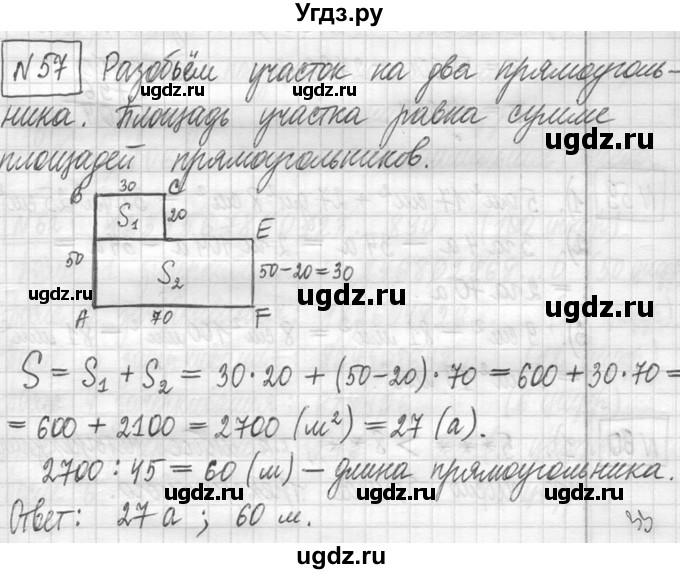 Угдз.ру
N 57 Разобьём участок на два прямоуголь-
ника. Площадь участка равна сумме
площадей прямоугольников.
ugdz.ru ugdz.ru ugdz.ru
ugdz.ru
B 30 C
S₁ 20
E
50 S₂ 50-20=30
ugdz.ru ugdz.ru ugdz.ru
A 70 F
S = S₁ + S₂ = 30·20 + (50-20)·70 = 600 + 30·70 =
ugdz.ru ugdz.ru
= 600 + 2100 = 2700 (м²) = 27 (а).
2700 : 45 = 60 (м) – длина прямоугольника.
ugdz.ru ugdz.ru ugdz.ru
Ответ: 27 а ; 60 м.
ugdz.ru ugdz.ru